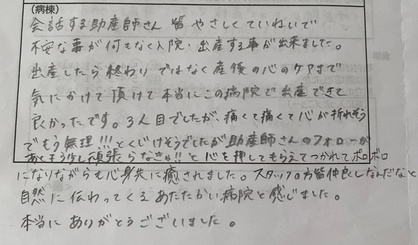 (病棟)
会話する助産師さん 皆 やさしくていねいで
不安な事が何もなく入院・出産する事が出来ました。
出産したら終わり ではなく産後の心のケアまで
気にかけて頂けて本当にこの病院で出産できて
良かったです。3人目でしたが、痛くて痛くて心が折れそう
でもう無理!!!とくじけそうでしたが助産師さんのフォローが
あともう少し頑張らなきゃ!!と心を押してもらえてつかれてボロボロ
になりながらも心身共に癒されました。スタッフの方皆仲良しなんだなと
自然に伝わってくるあたたかい病院と感じました。
本当に ありがとうございました。